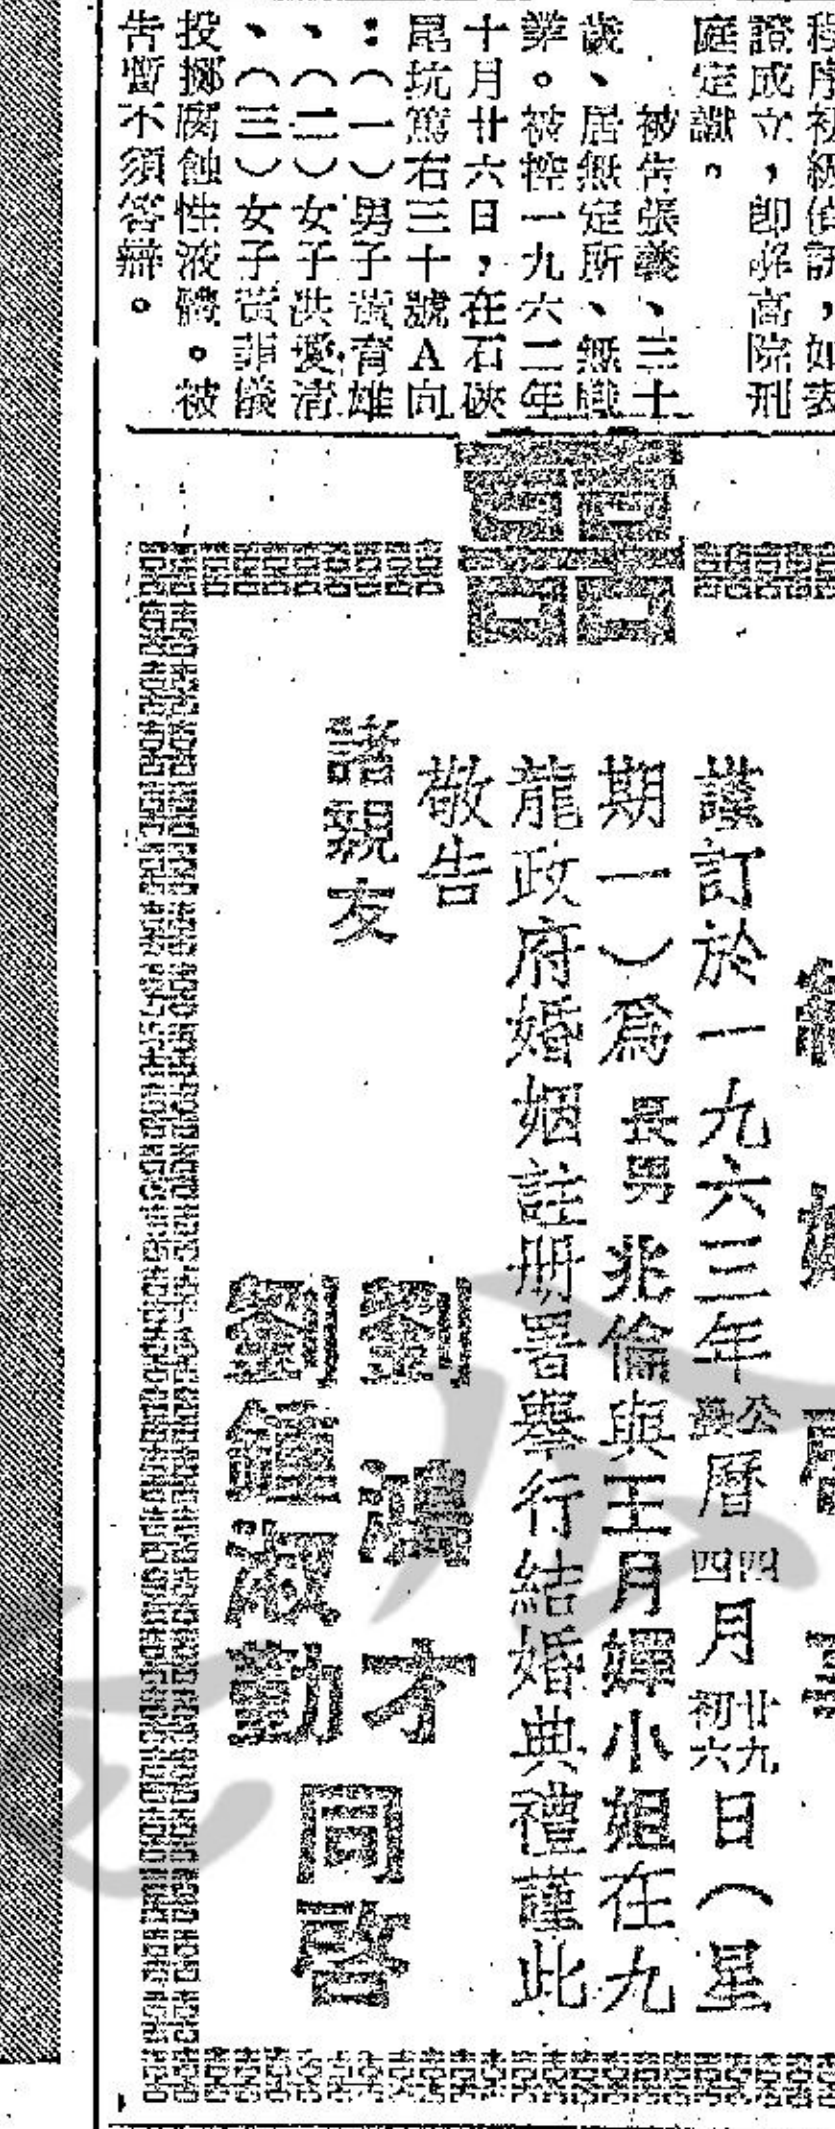 證成立，即解高院刑
庭定讞。
被告張義、三十
歲、居無定所、無職
業。被控一九六二年
十月廿六日，在石硤
尾坑篤右三十號A向
：（一）男子黃育雄
、（二）女子洪愛清
、（三）女子黃菲儀
投擲腐蝕性液體。被
告暫不須答辯。
囍
謹訂於一九六三年公農曆四四月廿九初六日（星
期一）爲長男兆倫與王月嬋小姐在九
龍政府婚姻註册署舉行結婚典禮謹此
敬告
諸親友
劉鴻才
劉鍾淑勤
同啓